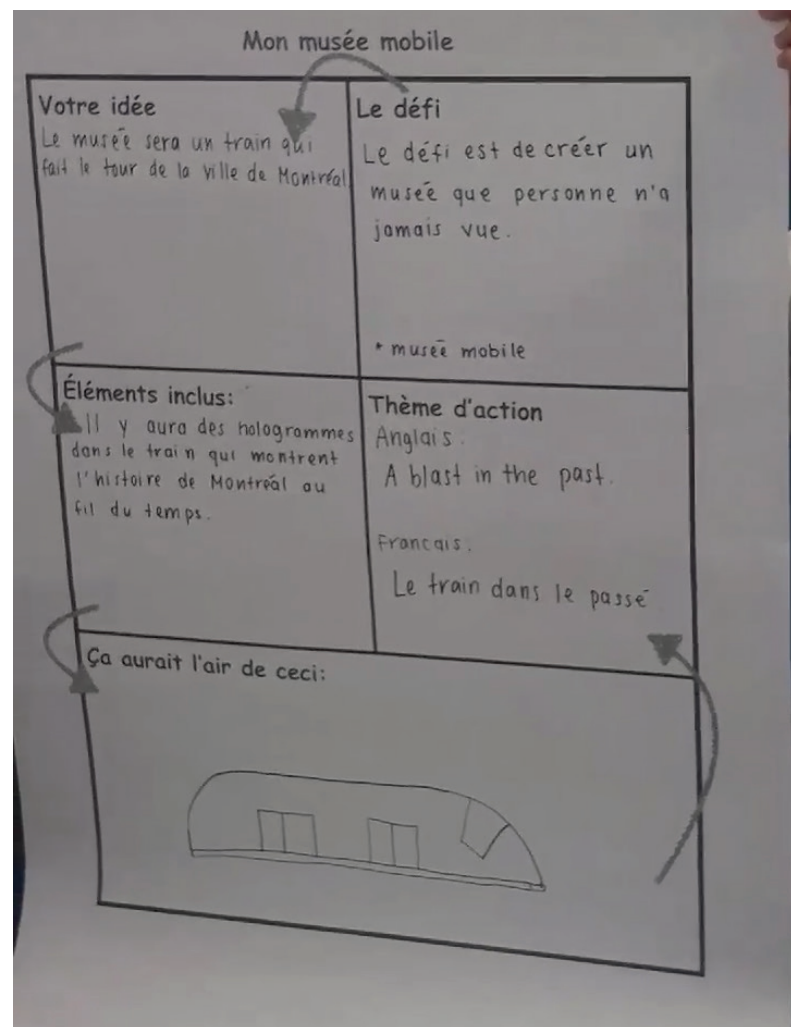 Mon musée mobile
Votre idée
Le musée sera un train qui
fait le tour de la ville de Montréal
Le défi
Le défi est de créer un
musée que personne n'a
jamais vue.
* musée mobile
Éléments inclus:
Il y aura des hologrammes
dans le train qui montrent
l'histoire de Montréal au
fil du temps.
Thème d'action
Anglais:
A blast in the past.
Francais:
Le train dans le passé
Ça aurait l'air de ceci: